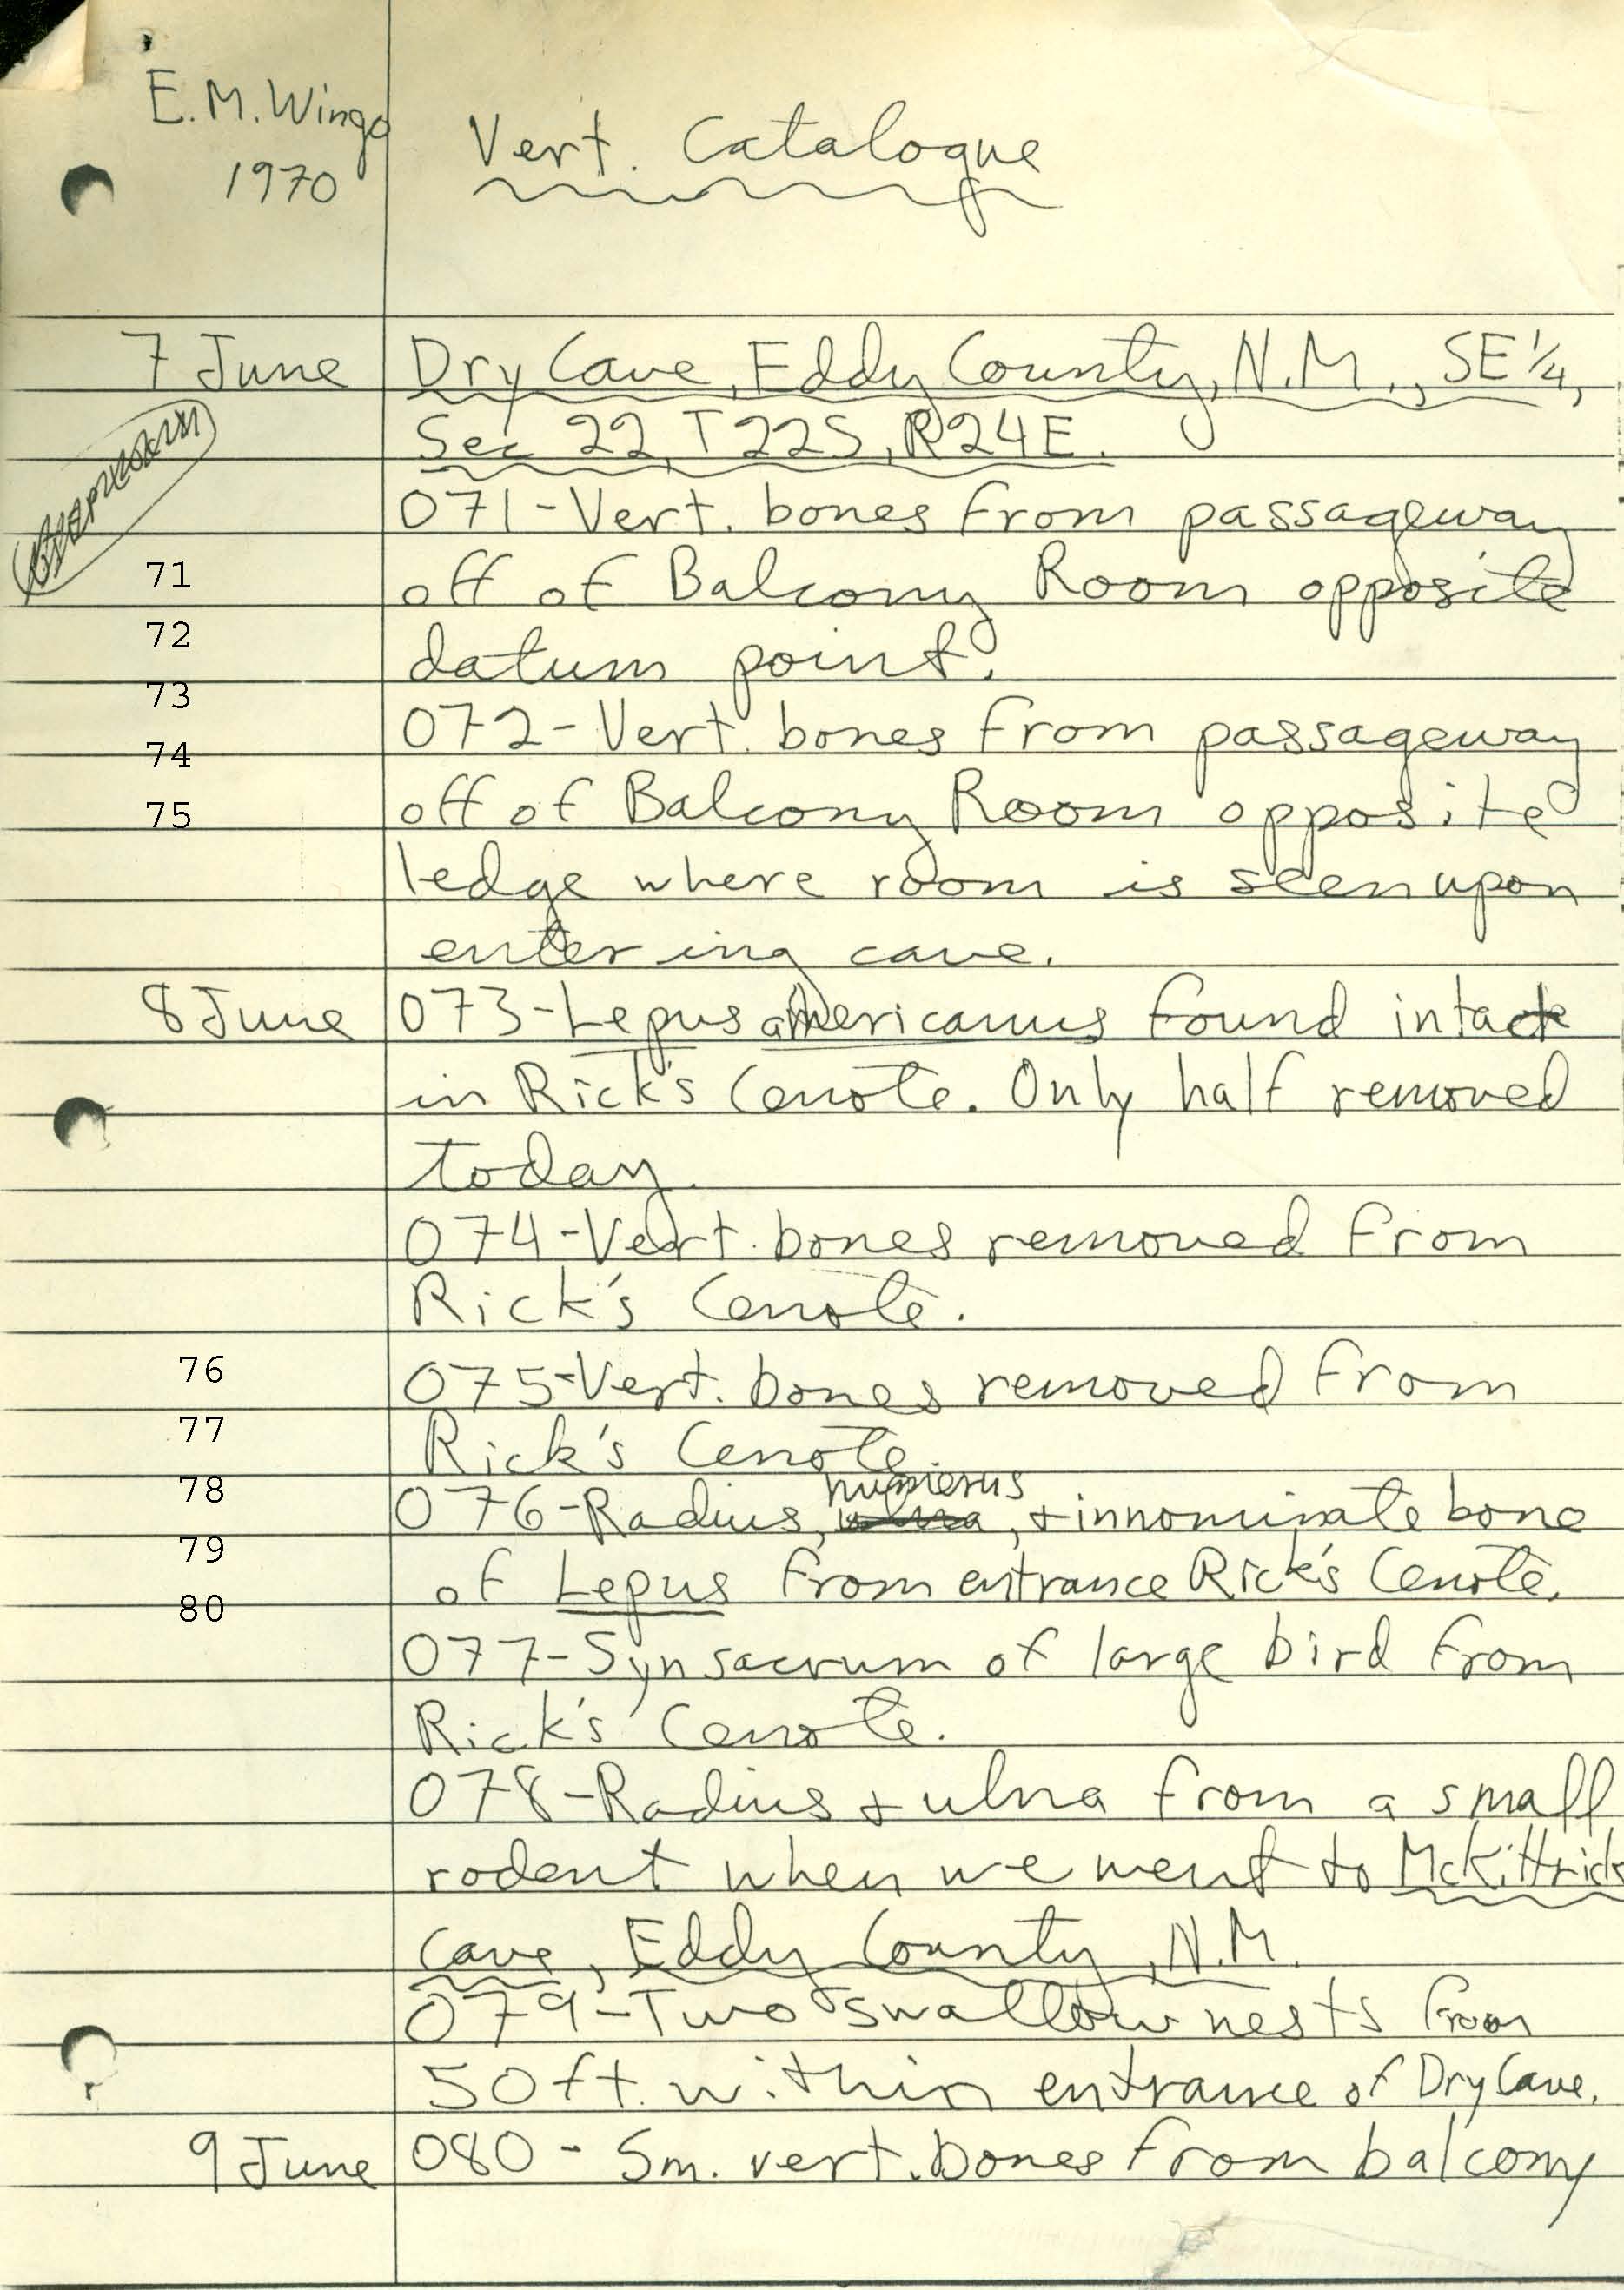 E.M. Wingo
1970
Vert. Catalogue
7 June
Dry Cave, Eddy County, N.M., SE 1/4,
Sec 22, T22S, R24E.
071-Vert. bones from passageway
71
off of Balcony Room opposite
72
datum point.
73
072-Vert. bones from passageway
74
off of Balcony Room opposite
75
ledge where room is seen upon
entering cave.
8 June
073-Lepus americanus found intact
in Rick's Cenote. Only half removed
today.
074-Vert. bones removed from
Rick's Cenote.
76
075-Vert. bones removed from
77
Rick's Cenote.
78
humerus
076-Radius, ulna, + innominate bone
79
of Lepus from entrance Rick's Cenote.
80
077-Synsacrum of large bird from
Rick's Cenote.
078-Radius + ulna from a small
rodent when we went to McKittrick
Cave, Eddy County, N.M.
079-Two swallow nests from
50ft. within entrance of Dry Cave.
9 June
080 - Sm. vert. bones from balcony